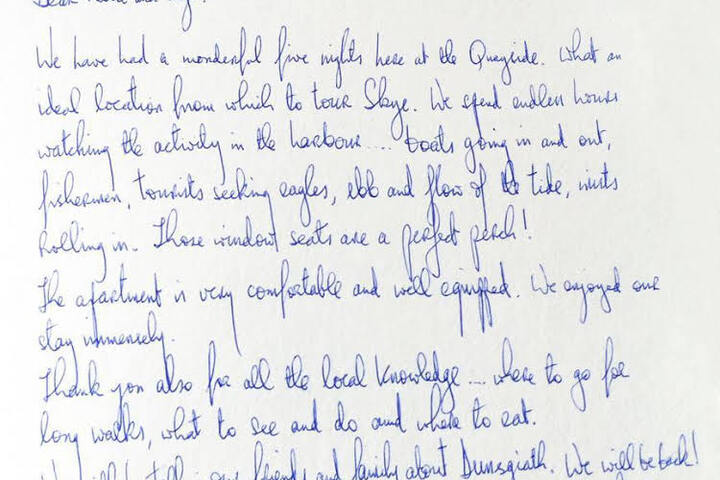 Dear
We have had a wonderful five nights here at the Quayside. What an
ideal location from which to tour Skye. We spend endless hours
watching the activity in the harbour.... boats going in and out,
fishermen, tourists seeking eagles, ebb and flow of the tide, mists
rolling in. Those window seats are a perfect perch!
The apartment is very comfortable and well equipped. We enjoyed our
stay immensely.
Thank you also for all the local knowledge.... where to go for
long walks, what to see and do and where to eat.
We will tell our friends and family about Dunsgiath. We will be back!